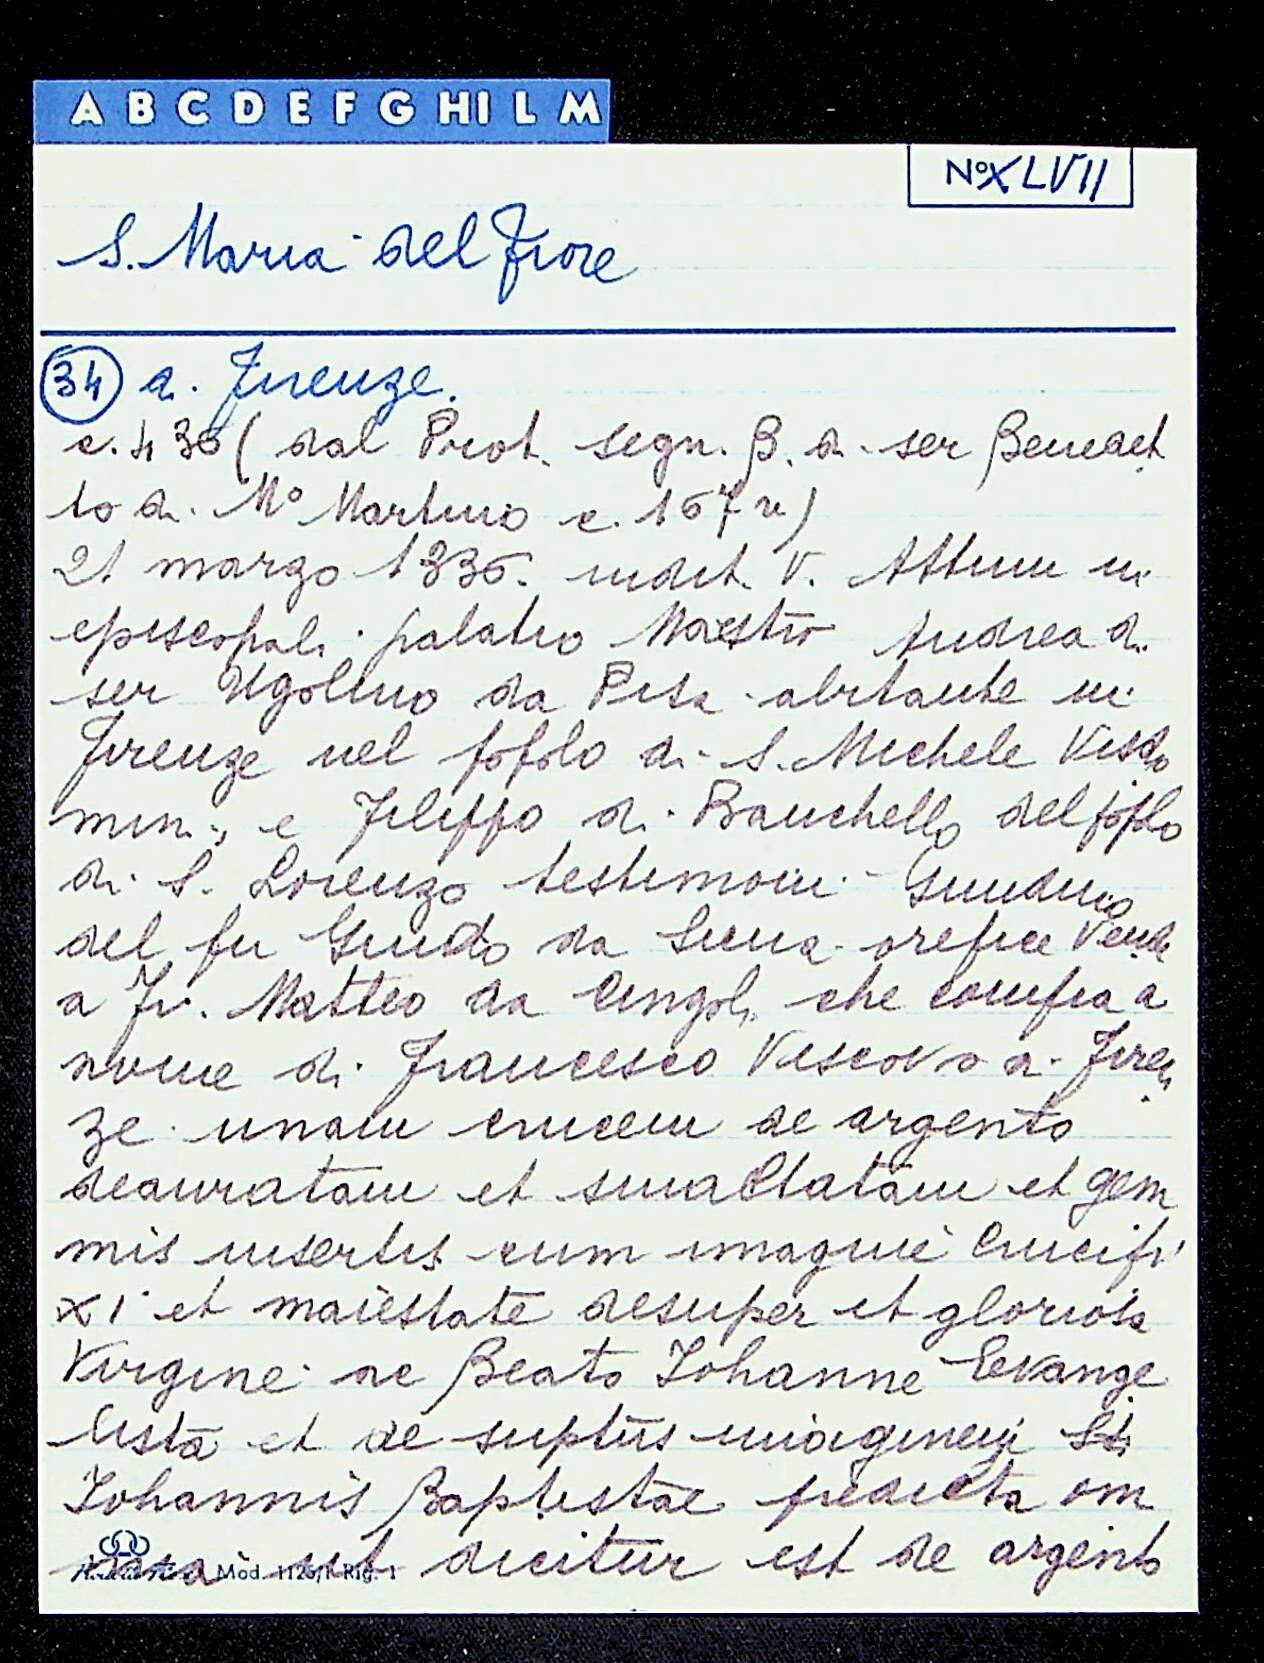 A B C D E F G HI L M
No XLVII
S. Maria del Fiore
34 di Firenze.
c. 436 (dal Prot. segn. B. di ser Benedet
to di Mo Martino c. 167 v)
21 marzo 1336. indict. V. Actum in
episcopali palatio Maestro Andrea di
ser Ugolino da Pisa abitante in
Firenze nel popolo di S. Michele Visdo
mini, e Filippo di Banchello del popolo
di S. Lorenzo testimoni Guiduccio
del fu Guido da Siena orefice Vende
a Fr. Matteo da Cingoli che compra a
nome di Francesco Vescovo di Firen
ze unam crucem de argento
deauratam et smaltatam et gem
mis insertis cum imagine Crucifi
xi et maiestate desuper et gloriosa
Virgine ac Beato Iohanne Evange
lista et de suptus imaginem Sti
Iohannis Baptistae predicta om
nia ut dicitur est de argento
Mod. 1125/1 Rig. 1